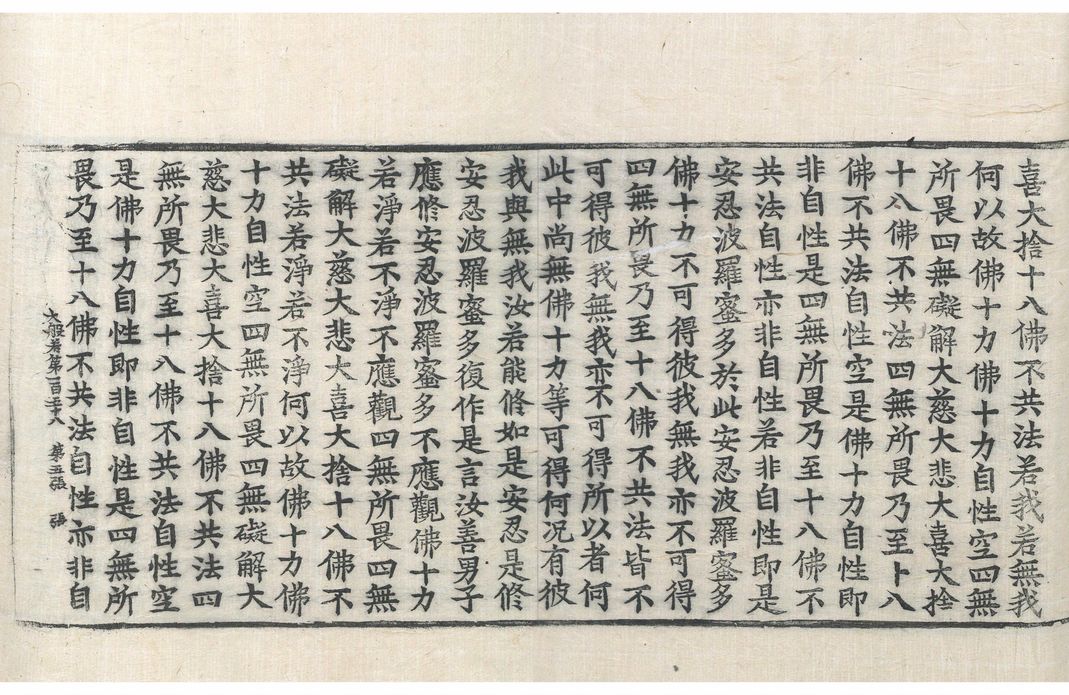 喜大捨十八佛不共法若我若無我
何以故佛十力佛十力自性空四無
所畏四無礙解大慈大悲大喜大捨
十八佛不共法四無所畏乃至十八
佛不共法自性空是佛十力自性即
非自性是四無所畏乃至十八佛不
共法自性亦非自性若非自性即是
安忍波羅蜜多於此安忍波羅蜜多
佛十力不可得彼我無我亦不可得
四無所畏乃至十八佛不共法皆不
可得彼我無我亦不可得所以者何
此中尚無佛十力等可得何況有彼
我與無我汝若能修如是安忍是修
安忍波羅蜜多復作是言汝善男子
應修安忍波羅蜜多不應觀佛十力
若淨若不淨不應觀四無所畏四無
礙解大慈大悲大喜大捨十八佛不
共法若淨若不淨何以故佛十力佛
十力自性空四無所畏四無礙解大
慈大悲大喜大捨十八佛不共法四
無所畏乃至十八佛不共法自性空
是佛十力自性即非自性是四無所
畏乃至十八佛不共法自性亦非自
大般若第一百五十六 第五張 張